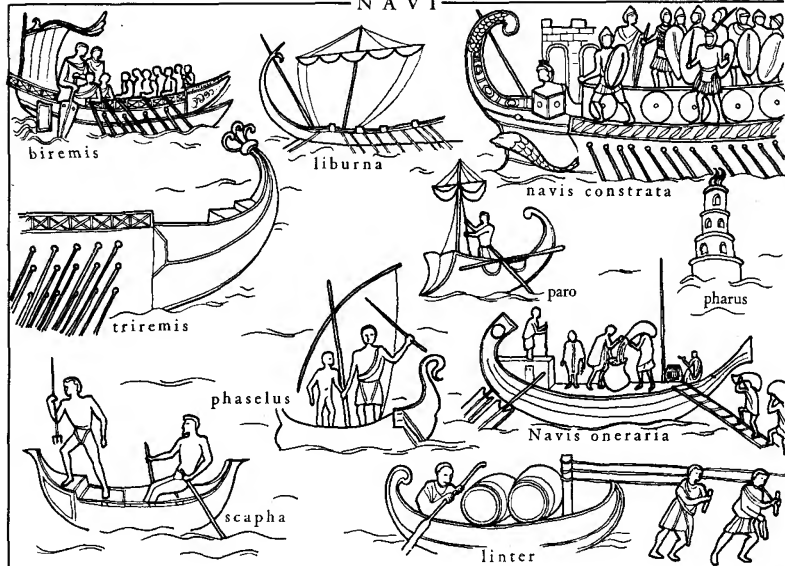 NAVI
biremis
liburna
navis constrata
triremis
paro
pharus
phaselus
Navis oneraria
scapha
linter